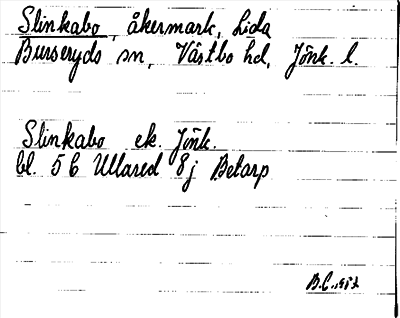 Slinkabo, åkermark, Lida
Burseryds sn, Västbo hd, Jönk. l.
Slinkabo ek. Jönk.
bl. 5C Ullared 8j Betarp
B.C.